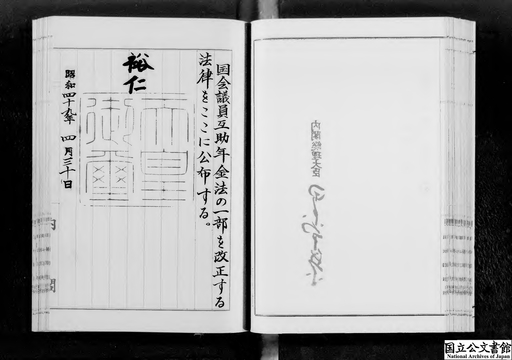 国会議員互助年金法の一部を改正する
法律をここに公布する。
裕仁
昭和四十九年四月三十日
天皇
御璽
内閣
内閣総理大臣
国立公文書館
National Archives of Japan